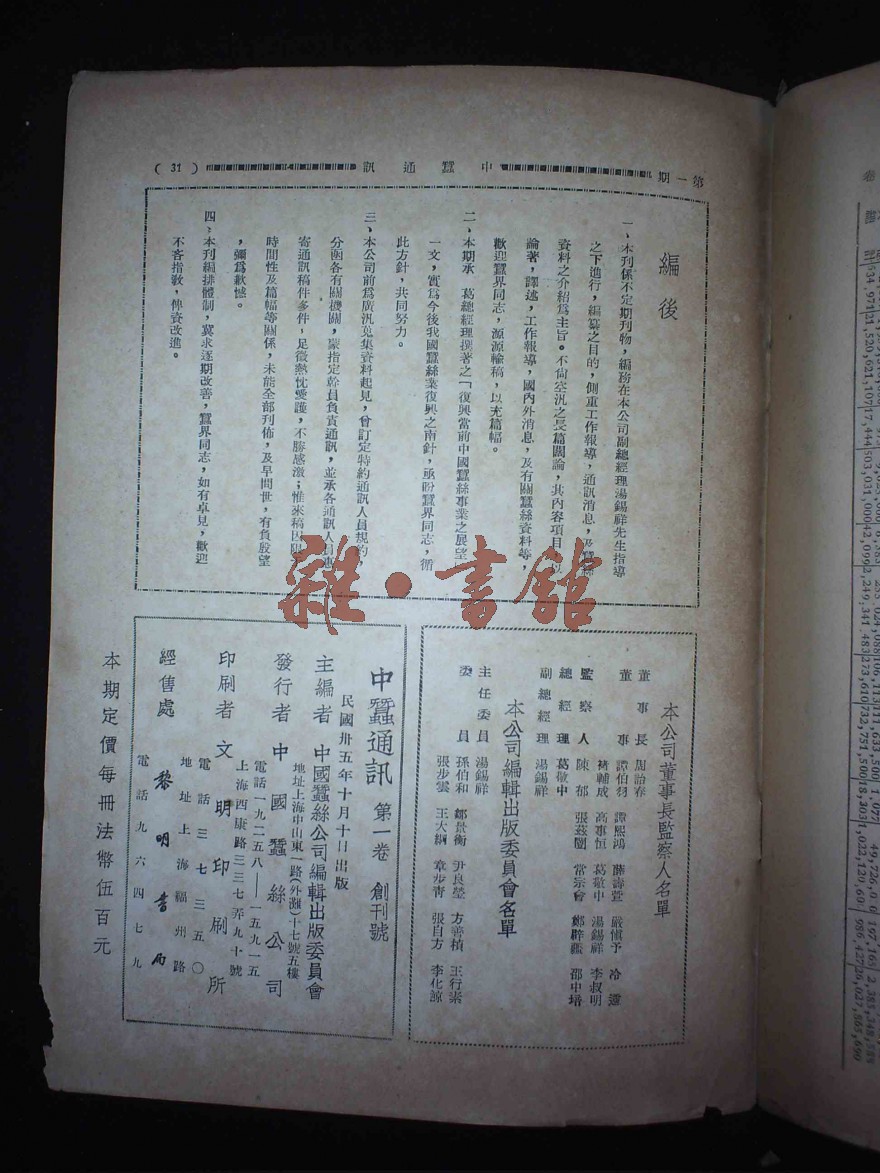 第一期
中蠶通訊
(31)
編後
一、本刊係不定期刊物，編務在本公司副總經理湯錫祥先生指導
之下進行，編纂之目的，側重工作報導，通訊消息，及蠶絲
資料之介紹為主旨。不尙空汎之長篇闊論，其內容項目，以
論著，譯述，工作報導，國內外消息，及有關蠶絲資料等，
歡迎蠶界同志，源源輸稿，以充篇幅。
二、本期承　葛總經理撰著之「復興當前中國蠶絲事業之展望」
一文，實為今後我國蠶絲業復興之南針，亟盼蠶界同志，循
此方針，共同努力。
三、本公司前為廣汎蒐集資料起見，曾訂定特約通訊人員規約，
分函各有關機關，蒙指定幹員負責通訊，並承各通訊人員惠
寄通訊稿件多件，足徵熱忱愛護，不勝感激；惟來稿因限
時間性及篇幅等關係，未能全部刊佈，及早問世，有負殷望
，彌為歉憾。
四、本刊編排體制，冀求逐期改善，蠶界同志，如有卓見，歡迎
不吝指敎，俾資改進。
本公司董事長監察人名單
董事長　周詒春
董事　譚伯羽　譚熙鴻　薛壽萱　嚴愼予　冷遹
褚輔成　高事恒　葛敬中　湯錫祥　李叔明
監察人　陳郁　張茲闓　常宗會　鄭辟疆　邵申培
總經理　葛敬中
副總經理　湯錫祥
本公司編輯出版委員會名單
主任委員　湯錫祥
委員　孫伯和　鄒景衡　尹良瑩　方善楨　王行素
張步雲　王大綱　章步青　張自方　李化諒
中蠶通訊　第一卷　創刊號
民國卅五年十月十日出版
主編者　中國蠶絲公司編輯出版委員會
地址上海中山東一路(外灘)十七號五樓
發行者　中國蠶絲公司
電話一九二五八——一五九一五
上海西康路三三七弄九十號
印刷者　文明印刷所
電話三七三五〇
地址上海福州路
經售處　黎明書局
電話九六四七九
本期定價每冊法幣伍百元
雜·書館